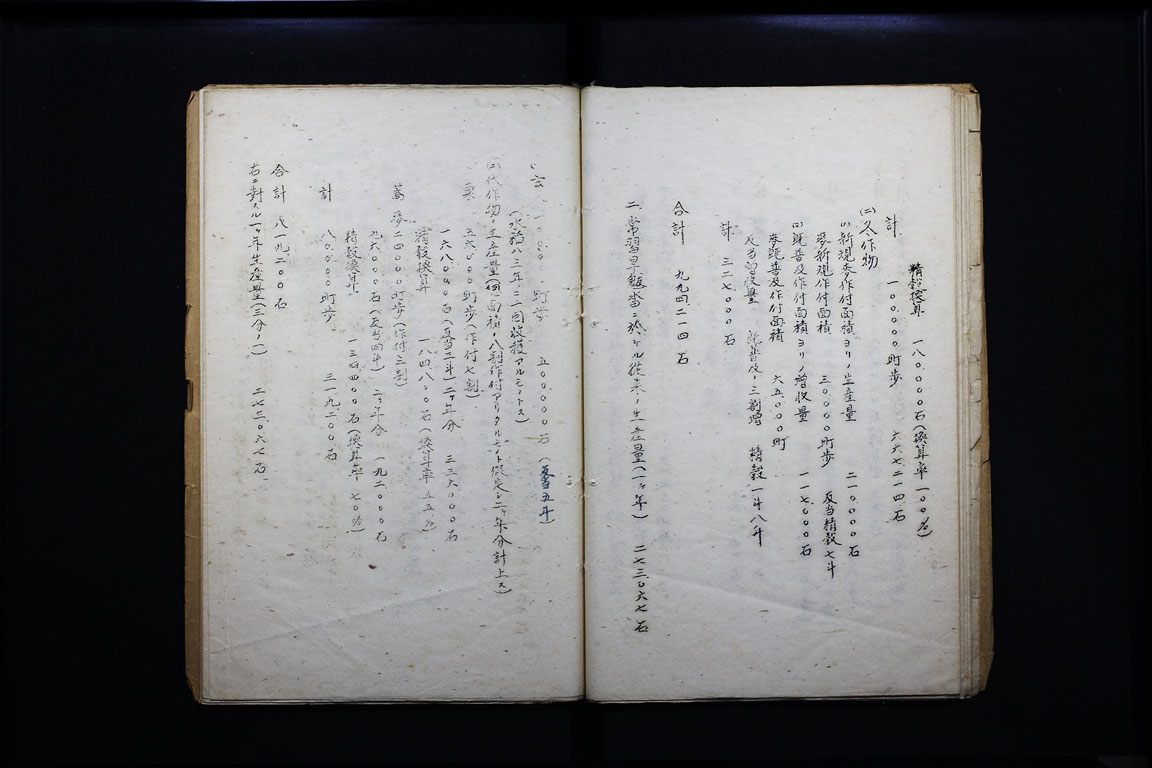 精穀換算　一八〇、〇〇〇石（換算率一〇〇％）
計　一〇〇、〇〇〇町歩　六六七、二一四石
(二)冬作物
(1)新規麥作付面積ヨリノ生産量　二一〇、〇〇〇石
麥新規作付面積　三〇〇、〇〇〇町歩　反当精穀七斗
(2)既普及作付面積ヨリノ増收量　一一七、〇〇〇石
麥既普及作付面積　六五、〇〇〇町
反当増收量　既普及ノ三割増　精穀一斗八升
計　三二七、〇〇〇石
合計　九九四、二一四石
二、常習旱魃畓ニ於ケル従来ノ生産量（一ヶ年）　二七三、〇六七石
町歩　五〇〇、〇〇〇石（反当五斗）
（水稲ハ三年ニ一回收穫アルモノトス）
(二)代作物ノ生産量（面積ノ八割作付アリタルモノト仮定シ二ヶ年分計上ス）
粟　五六、〇〇〇町歩（作付七割）
一六八、〇〇〇石（反当三斗）二ヶ年分　三三六、〇〇〇石
精穀換算　一八四、八〇〇石（換算率五五％）
蕎麥　二四、〇〇〇町歩（作付三割）
九六、〇〇〇石（反当四斗）二ヶ年分　一九二、〇〇〇石
精穀換算　一三四、四〇〇石（換算率七〇％）
計　八〇、〇〇〇町歩　三一九、二〇〇石
合計　八一九、二〇〇石
右ニ對スル一ヶ年生産量（三分ノ一）　二七三、〇六七石